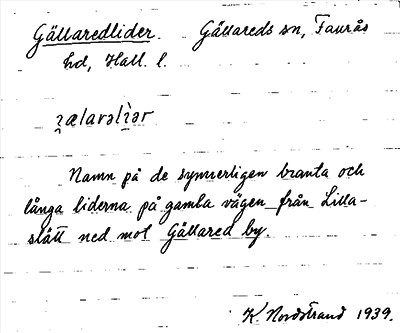 Gällaredlider. Gällareds sn, Faurås
hd, Hall. l.
ꝫælarəlìər
Namn på de synnerligen branta och
långa liderna på gamla vägen från Lilla-
slätt ned mot Gällared by.
K Nordstrand 1939.